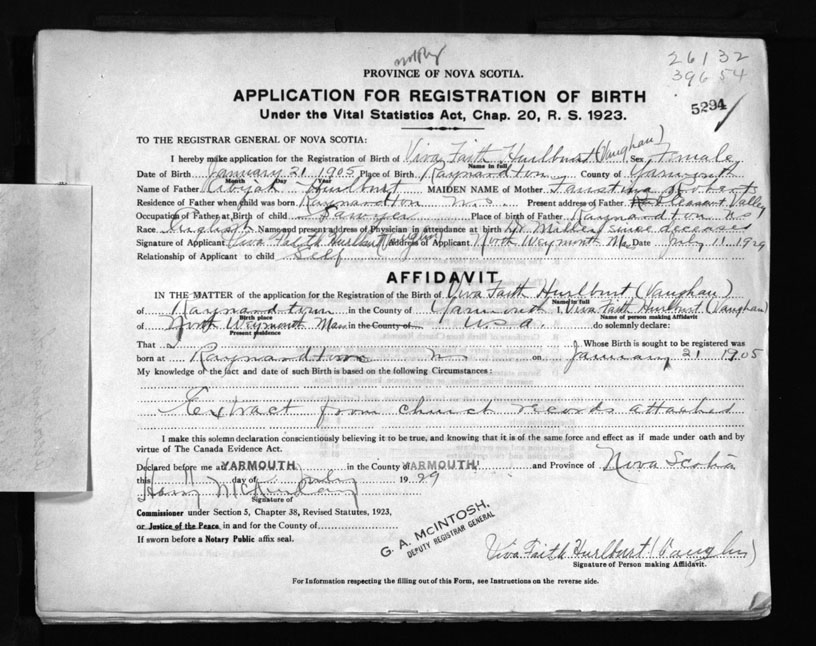 26132
39654
5294
PROVINCE OF NOVA SCOTIA.
APPLICATION FOR REGISTRATION OF BIRTH
Under the Vital Statistics Act, Chap. 20, R. S. 1923.
TO THE REGISTRAR GENERAL OF NOVA SCOTIA:
I hereby make application for the Registration of Birth of Viva Faith Hurlburt (Vaughan) Sex Female
Name in full
Date of Birth January 21 1905 Place of Birth Raynardton, County of Yarmouth
Month Day Year
Name of Father Hurlburt MAIDEN NAME of Mother Roberts
Residence of Father when child was born Raynardton N.S. Present address of Father Pleasant Valley
Occupation of Father at Birth of child Sawyer Place of birth of Father Raynardton NS
Race English Name and present address of Physician in attendance at birth Dr since deceased
Signature of Applicant Viva Faith Hurlburt (Vaughn) Address of Applicant North Weymouth Mass Date July 11 1929
Relationship of Applicant to child Self
AFFIDAVIT
IN THE MATTER of the application for the Registration of the Birth of Viva Faith Hurlburt (Vaughan)
Name in full
of Raynardtown in the County of Yarmouth I, Viva Faith Hurlburt (Vaughan)
Birth place Name of person making Affidavit
of North Weymouth Mass in the County of U.S.A. do solemnly declare:
Present residence
That I Whose Birth is sought to be registered was
born at Raynardtown NS on January 21 1905
My knowledge of the fact and date of such Birth is based on the following Circumstances:
Extract from church records attached
I make this solemn declaration conscientiously believing it to be true, and knowing that it is of the same force and effect as if made under oath and by
virtue of The Canada Evidence Act.
Declared before me at YARMOUTH in the County of YARMOUTH and Province of Nova Scotia
this day of July 1929
Harry
Signature of
Commissioner under Section 5, Chapter 38, Revised Statutes, 1923,
or Justice of the Peace, in and for the County of
If sworn before a Notary Public affix seal.
G. A. McINTOSH,
DEPUTY REGISTRAR GENERAL
Viva Faith Hurlburt (Vaughn)
Signature of Person making Affidavit.
For Information respecting the filling out of this Form, see Instructions on the reverse side.